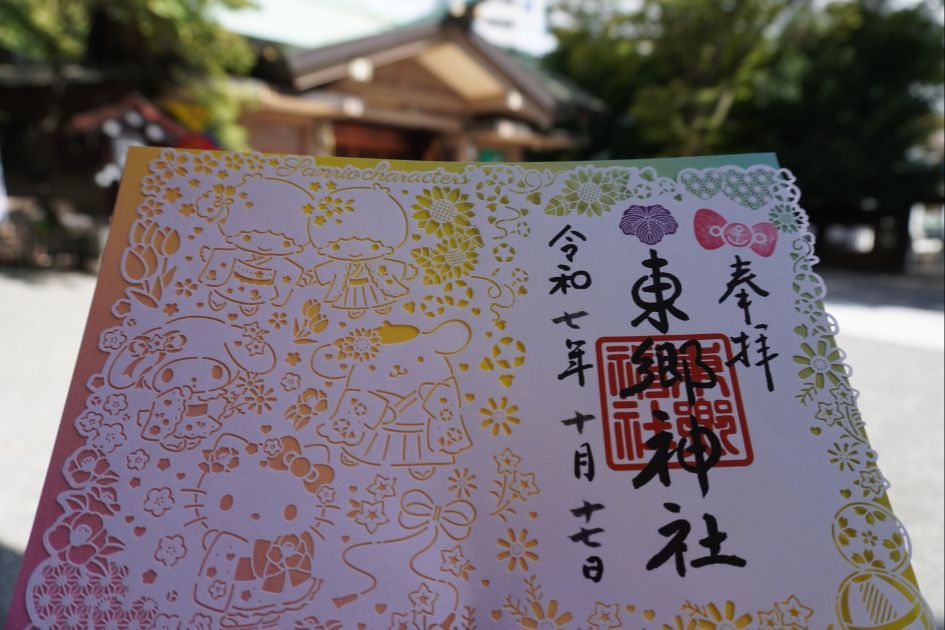 Sanrio characters
奉拝
東郷神社
東郷神社
令和七年 十月 十七日